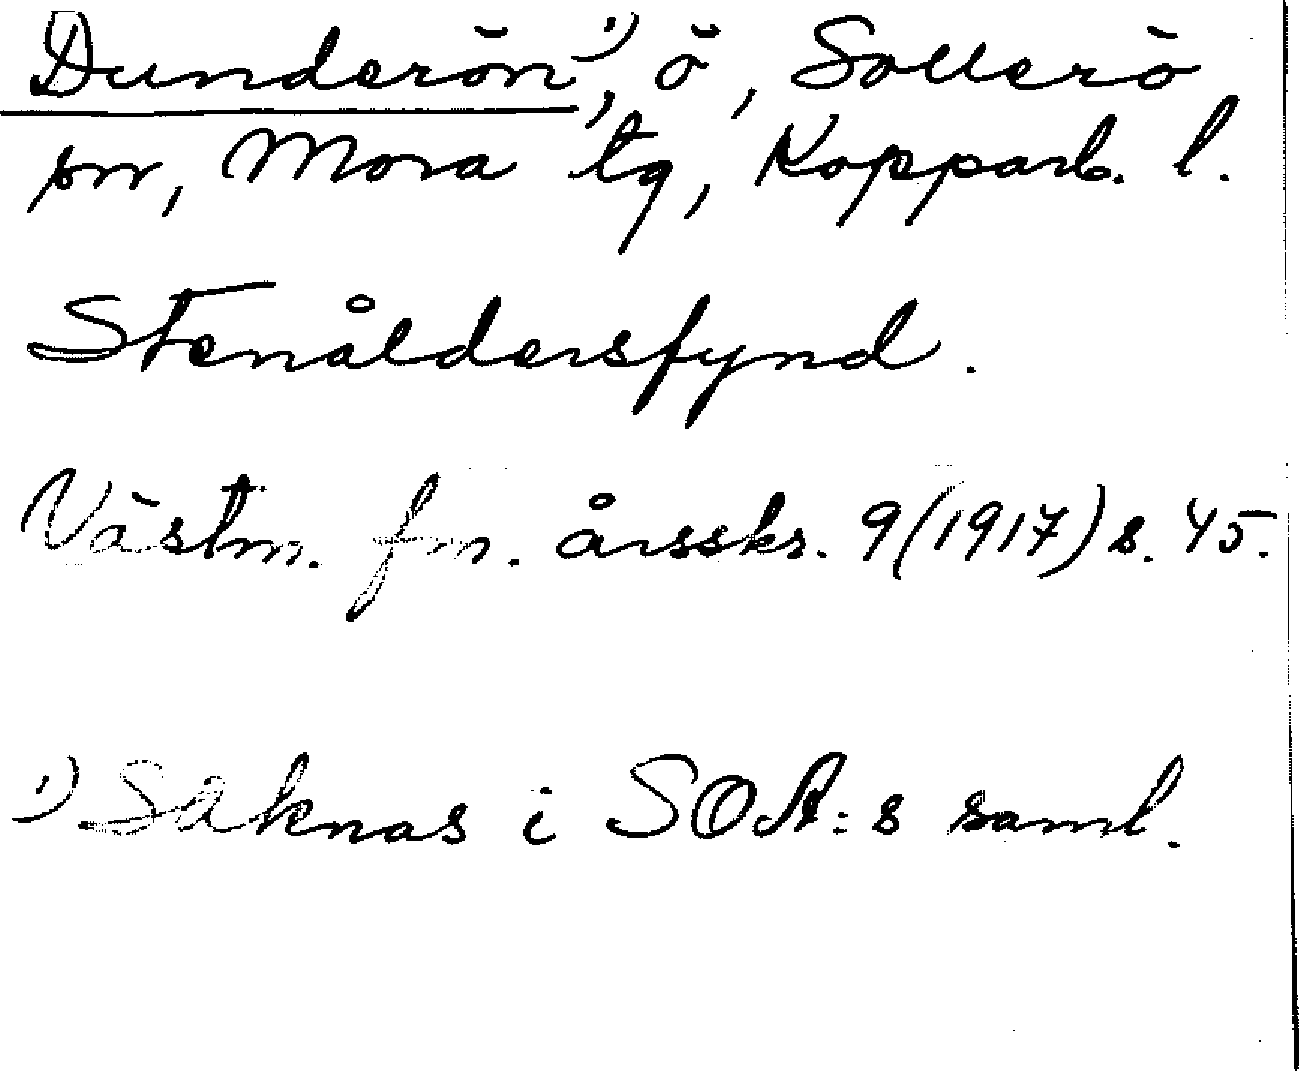 Dunderön¹⁾, ö, Sollerö
sn, Mora tg, Kopparb. l.
Stenåldersfynd.
Västm. fm. årsskr. 9 (1917) s. 45.
¹⁾ Saknas i SOA:s saml.